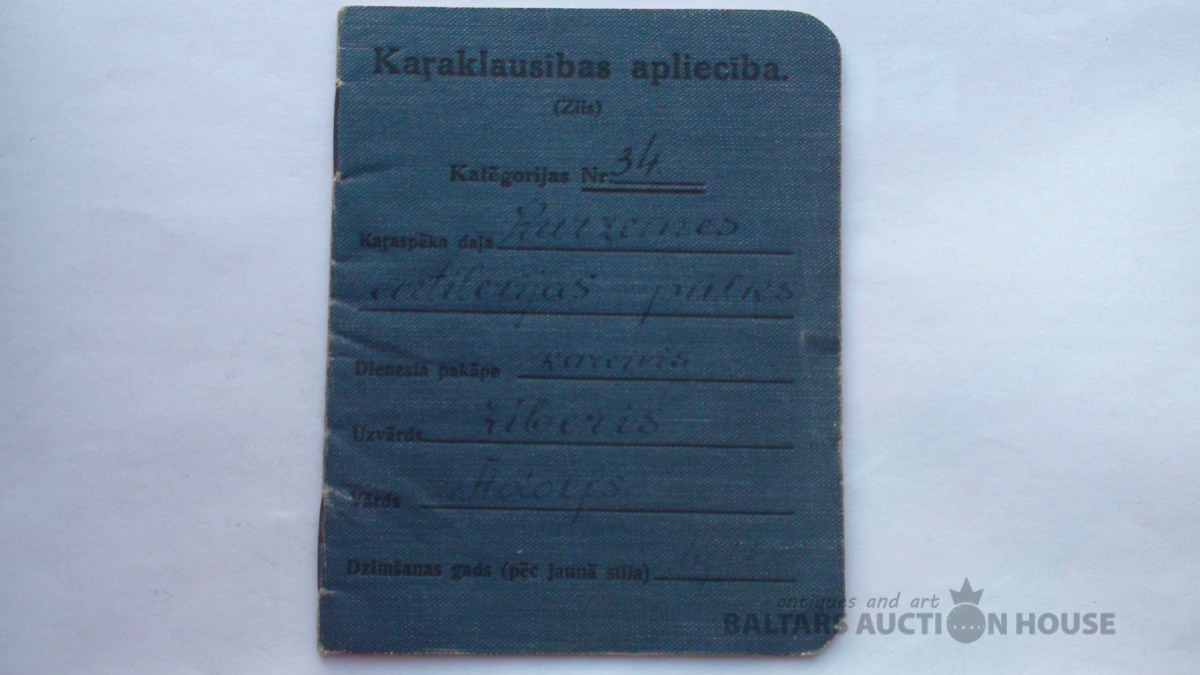 Kaŗaklausības apliecība.
(Zils)
Katēgorijas Nr. 34
Kaŗaspēka daļa Kurzemes
artilerijas pulks
Dienesta pakāpe kareivis
Uzvārds Ziberis
Vārds Ādolfs
Dzimšanas gads (pēc jaunā stila)
antiques and art
BALTARS AUCTION HOUSE